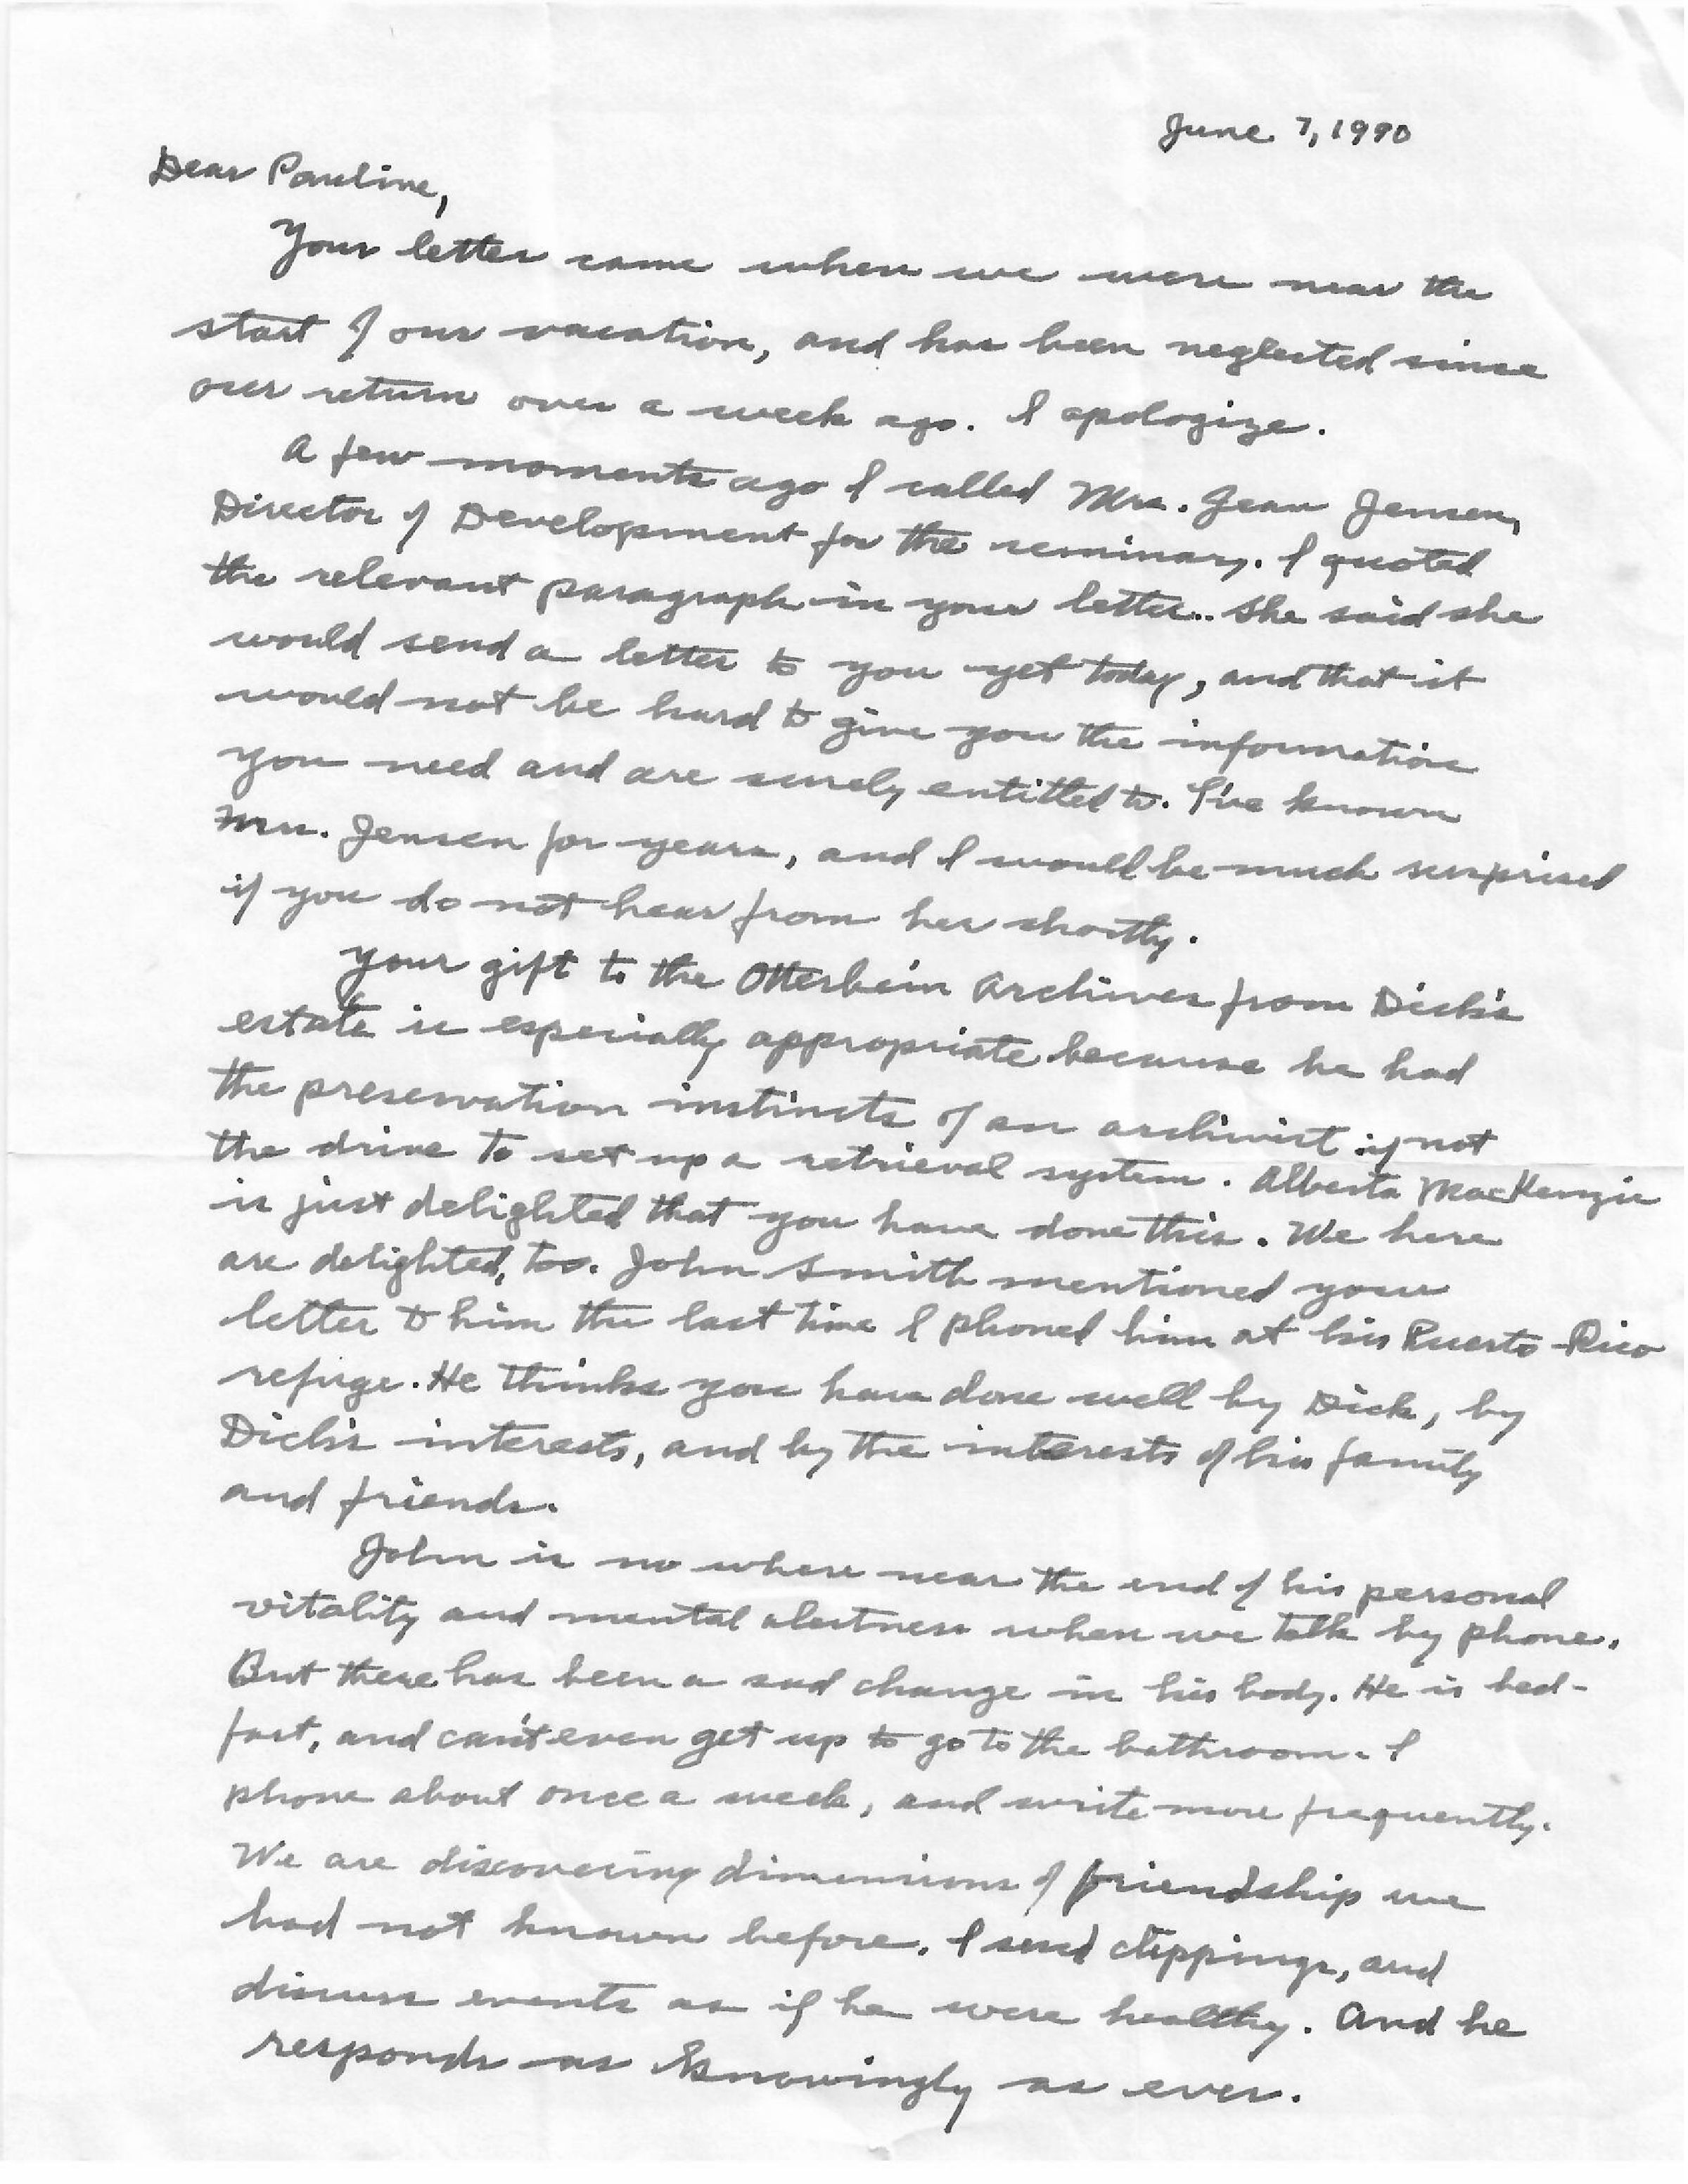 June 7, 1990
Dear Pauline,
Your letter came when we were near the
start of our vacation, and has been neglected since
our return over a week ago. I apologize.
A few moments ago I called Mrs. Jean Jensen,
Director of Development for the seminary. I quoted
the relevant paragraph in your letter.. She said she
would send a letter to you yet today, and that it
would not be hard to give you the information
you need and are surely entitled to. I've known
Mrs. Jensen for years, and I would be much surprised
if you do not hear from her shortly.
Your gift to the Otterbein Archives from Dick's
estate is especially appropriate because he had
the preservation instincts of an archivist if not
the drive to set up a retrieval system. Alberta MacKenzie
is just delighted that you have done this. We here
are delighted, too. John Smith mentioned your
letter to him the last time I phoned him at his Puerto Rico
refuge. He thinks you have done well by Dick, by
Dick's interests, and by the interests of his family
and friends.
John is no where near the end of his personal
vitality and mental alertness when we talk by phone.
But there has been a sad change in his body. He is bed-
fast, and can't even get up to go to the bathroom. I
phone about once a week, and write more frequently.
We are discovering dimensions of friendship we
had not known before. I send clippings, and
discuss events as if he were healthy. And he
responds as knowingly as ever.